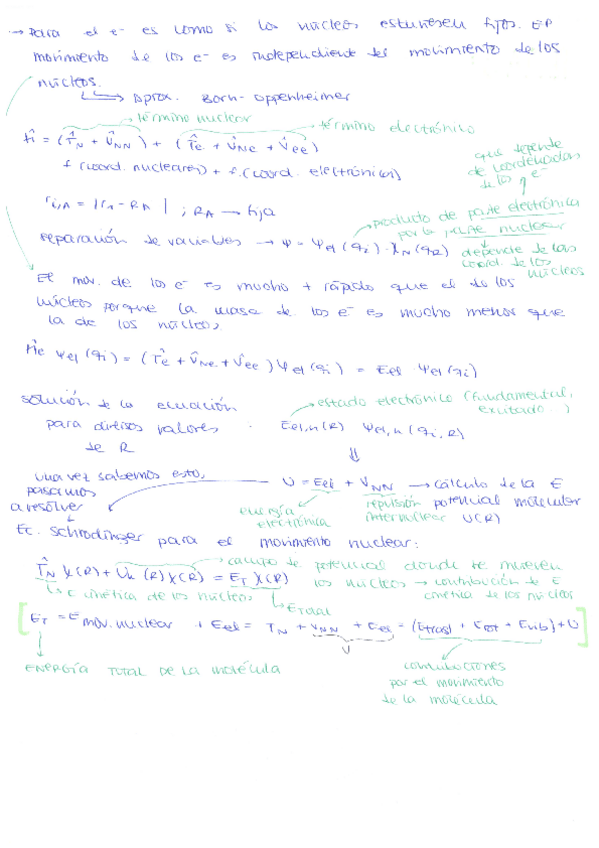 → Para el e⁻ es como si los núcleos estuviesen fijos. El
movimiento de los e⁻ es independiente del movimiento de los
núcleos.
↳ Aprox. Born-Oppenheimer
término nuclear
término electrónico
Ĥ = (T̂N + V̂NN) + (T̂e + V̂Ne + V̂ee)
f(coord. nucleares) + f.(coord. electrónicas)
que depende
de coordenadas
de los e⁻
q
ri,A = |ri - RA| ; RA → fija
producto de parte electrónica
por la parte nuclear
separación de variables → Ψ = Ψel(qi) · χN(qR)
depende de las
coord. de los
núcleos
El mov. de los e⁻ es mucho + rápido que el de los
núcleos porque la masa de los e⁻ es mucho menor que
la de los núcleos
Ĥe Ψel(qi) = (T̂e + V̂Ne + V̂ee) Ψel(qi) = Eel · Ψel(qi)
solución de la ecuación
para diversos valores
de R
→ estado electrónico (fundamental,
excitado..)
Eel,n(R) Ψel,n(qi,R)
⇓
una vez sabemos esto,
pasamos
a resolver
U = Eel + VNN → cálculo de la E
potencial molecular
U(R)
energía
electrónica
repulsión
internuclear
Ec. Schrödinger para el movimiento nuclear:
→ campo de potencial donde se mueven
los núcleos → contribución de E
cinética de los núcleos
T̂N χ(R) + Un(R) χ(R) = ET χ(R)
E cinética de los núcleos
Etotal
[ET = E mov. nuclear + Eel = TN + VNN + Eel = (Etrasl + Erot + Evib) + U]
U
ENERGÍA TOTAL DE LA MOLÉCULA
contribuciones
por el movimiento
de la molécula